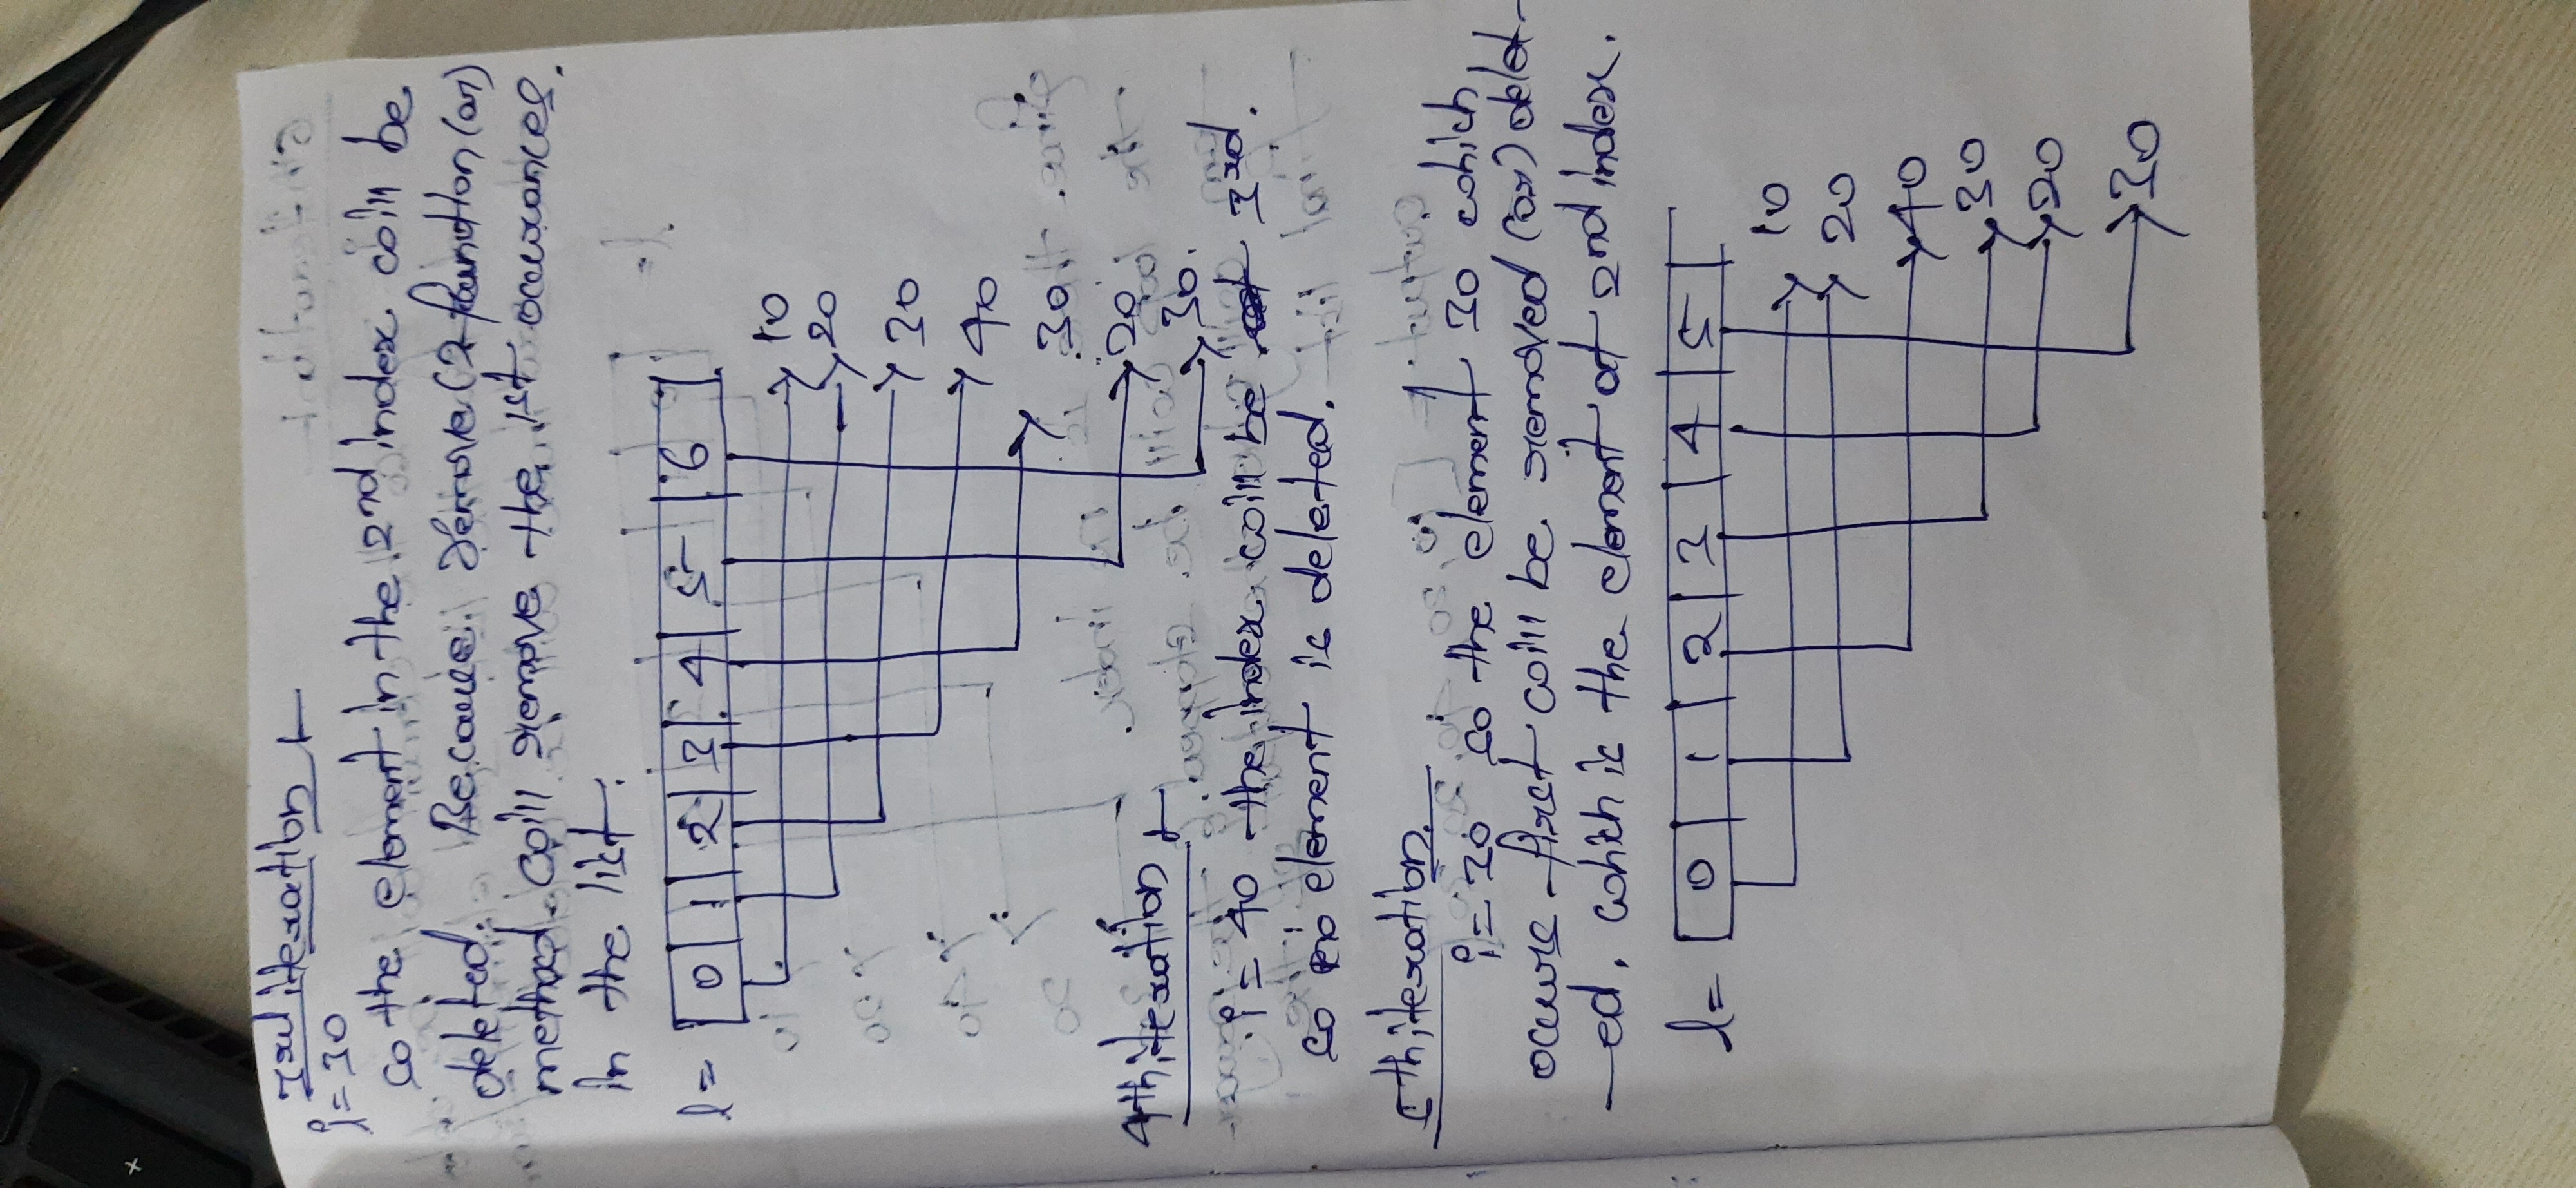 3rd iteration :-
i=30
so the element in the 2nd index will be
deleted. Because remove() function (or)
method will remove the 1st occurances
in the list.
l= 0 1 2 3 4 5 6
10
20
30
40
30
20
30
4th iteration :-
i= 40 the index will be 3rd.
so no element is deleted.
5th iteration
i= 30 so the element 30 which
occurs first will be removed (or) delet-
-ed. which is the element at 2nd index.
l= 0 1 2 3 4 5
10
20
40
30
20
30